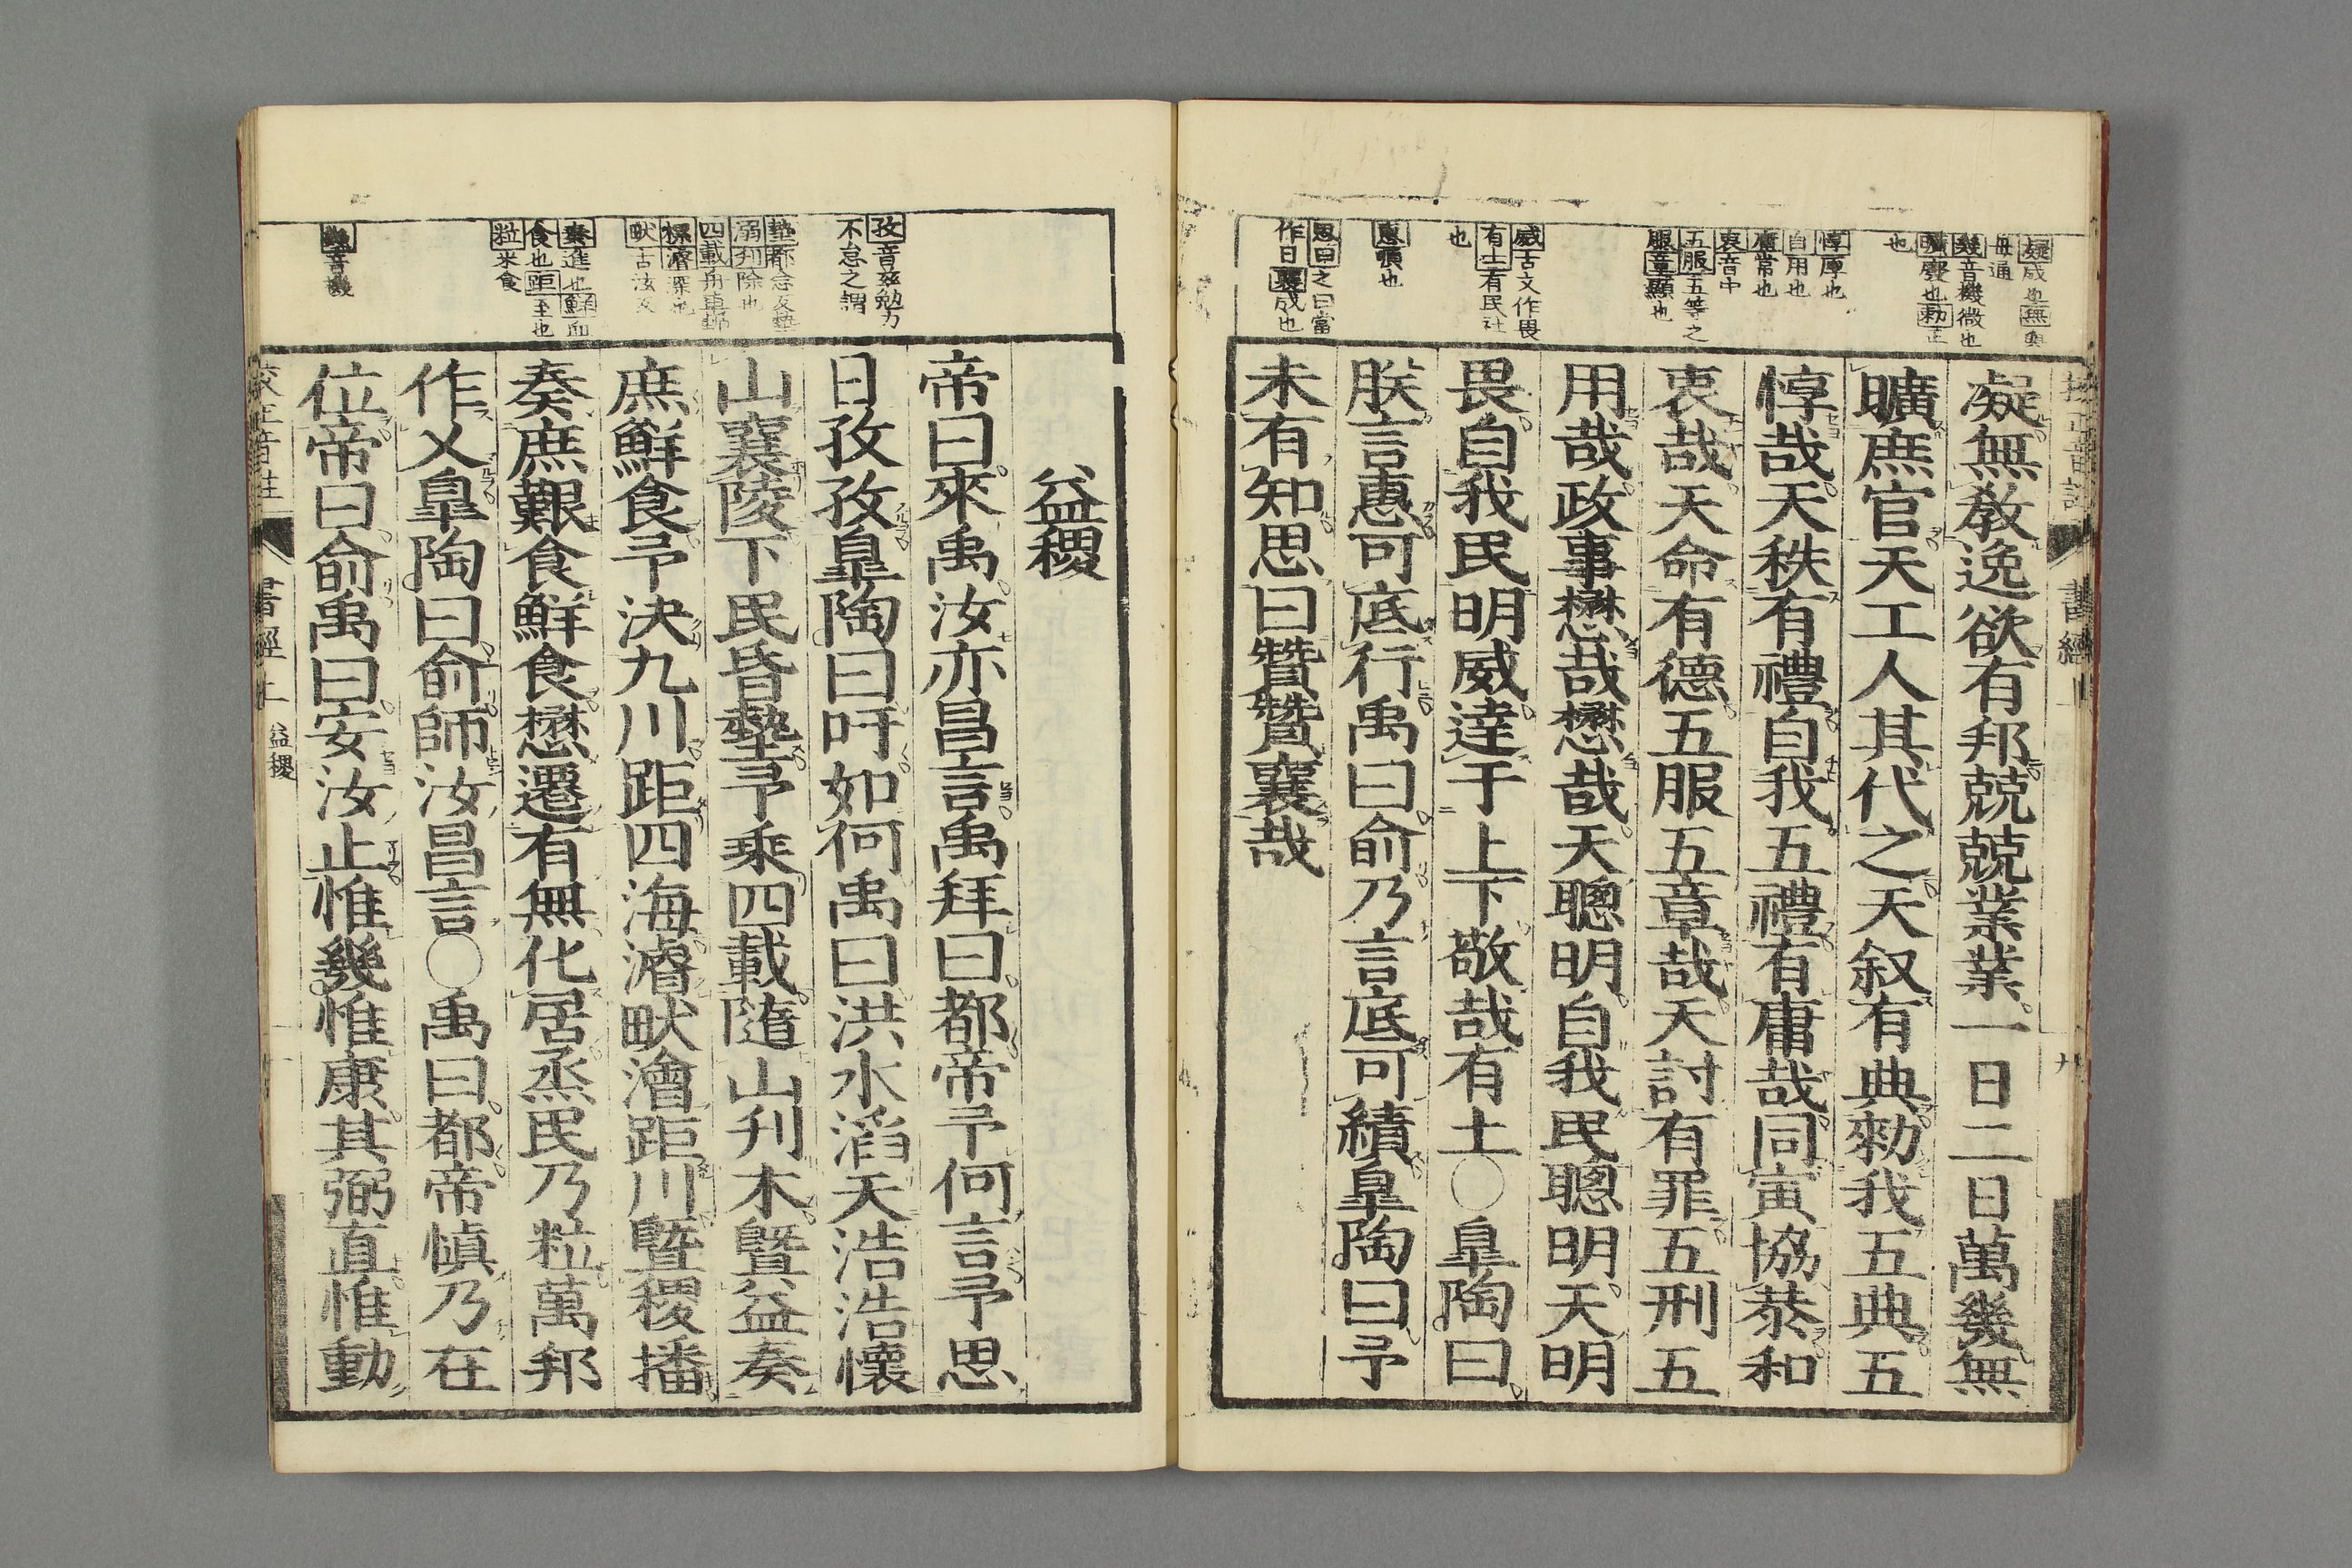 凝無敎逸欲有邦兢兢業業一日二日萬幾無
曠庶官天工人其代之天叙有典勑我五典五
惇哉天秩有禮自我五禮有庸哉同寅協恭和
衷哉天命有德五服五章哉天討有罪五刑五
用哉政事懋哉懋哉天聰明自我民聰明天明
畏自我民明威達于上下敬哉有土○皐陶曰
朕言惠可底行禹曰俞乃言底可績皐陶曰予
未有知思曰贊贊襄哉
惇厚也
自用也
庸常也
衷音中
五服五等之
服章顯也
威古文作畏
有土有民社
也
思曰之曰當
作日襄成也
益稷
帝曰來禹汝亦昌言禹拜曰都帝予何言予思
日孜孜皐陶曰吁如何禹曰洪水滔天浩浩懷
山襄陵下民昏墊予乘四載隨山刋木曁益奏
庶鮮食予決九川距四海濬畎澮距川曁稷播
奏庶艱食鮮食懋遷有無化居烝民乃粒萬邦
作乂皐陶曰俞師汝昌言○禹曰都帝愼乃在
位帝曰俞禹曰安汝止惟幾惟康其弼直惟動
孜音玆勉力
不怠之謂
食也距至也
粒米食
書經上
益稷